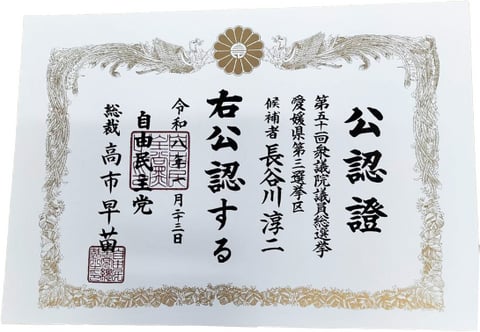 公認證
第五十一回衆議院議員総選挙
愛媛県第三選挙区
候補者 長谷川淳二
右公認する
令和八年 月二十三日
自由民主党
総裁 高市早苗